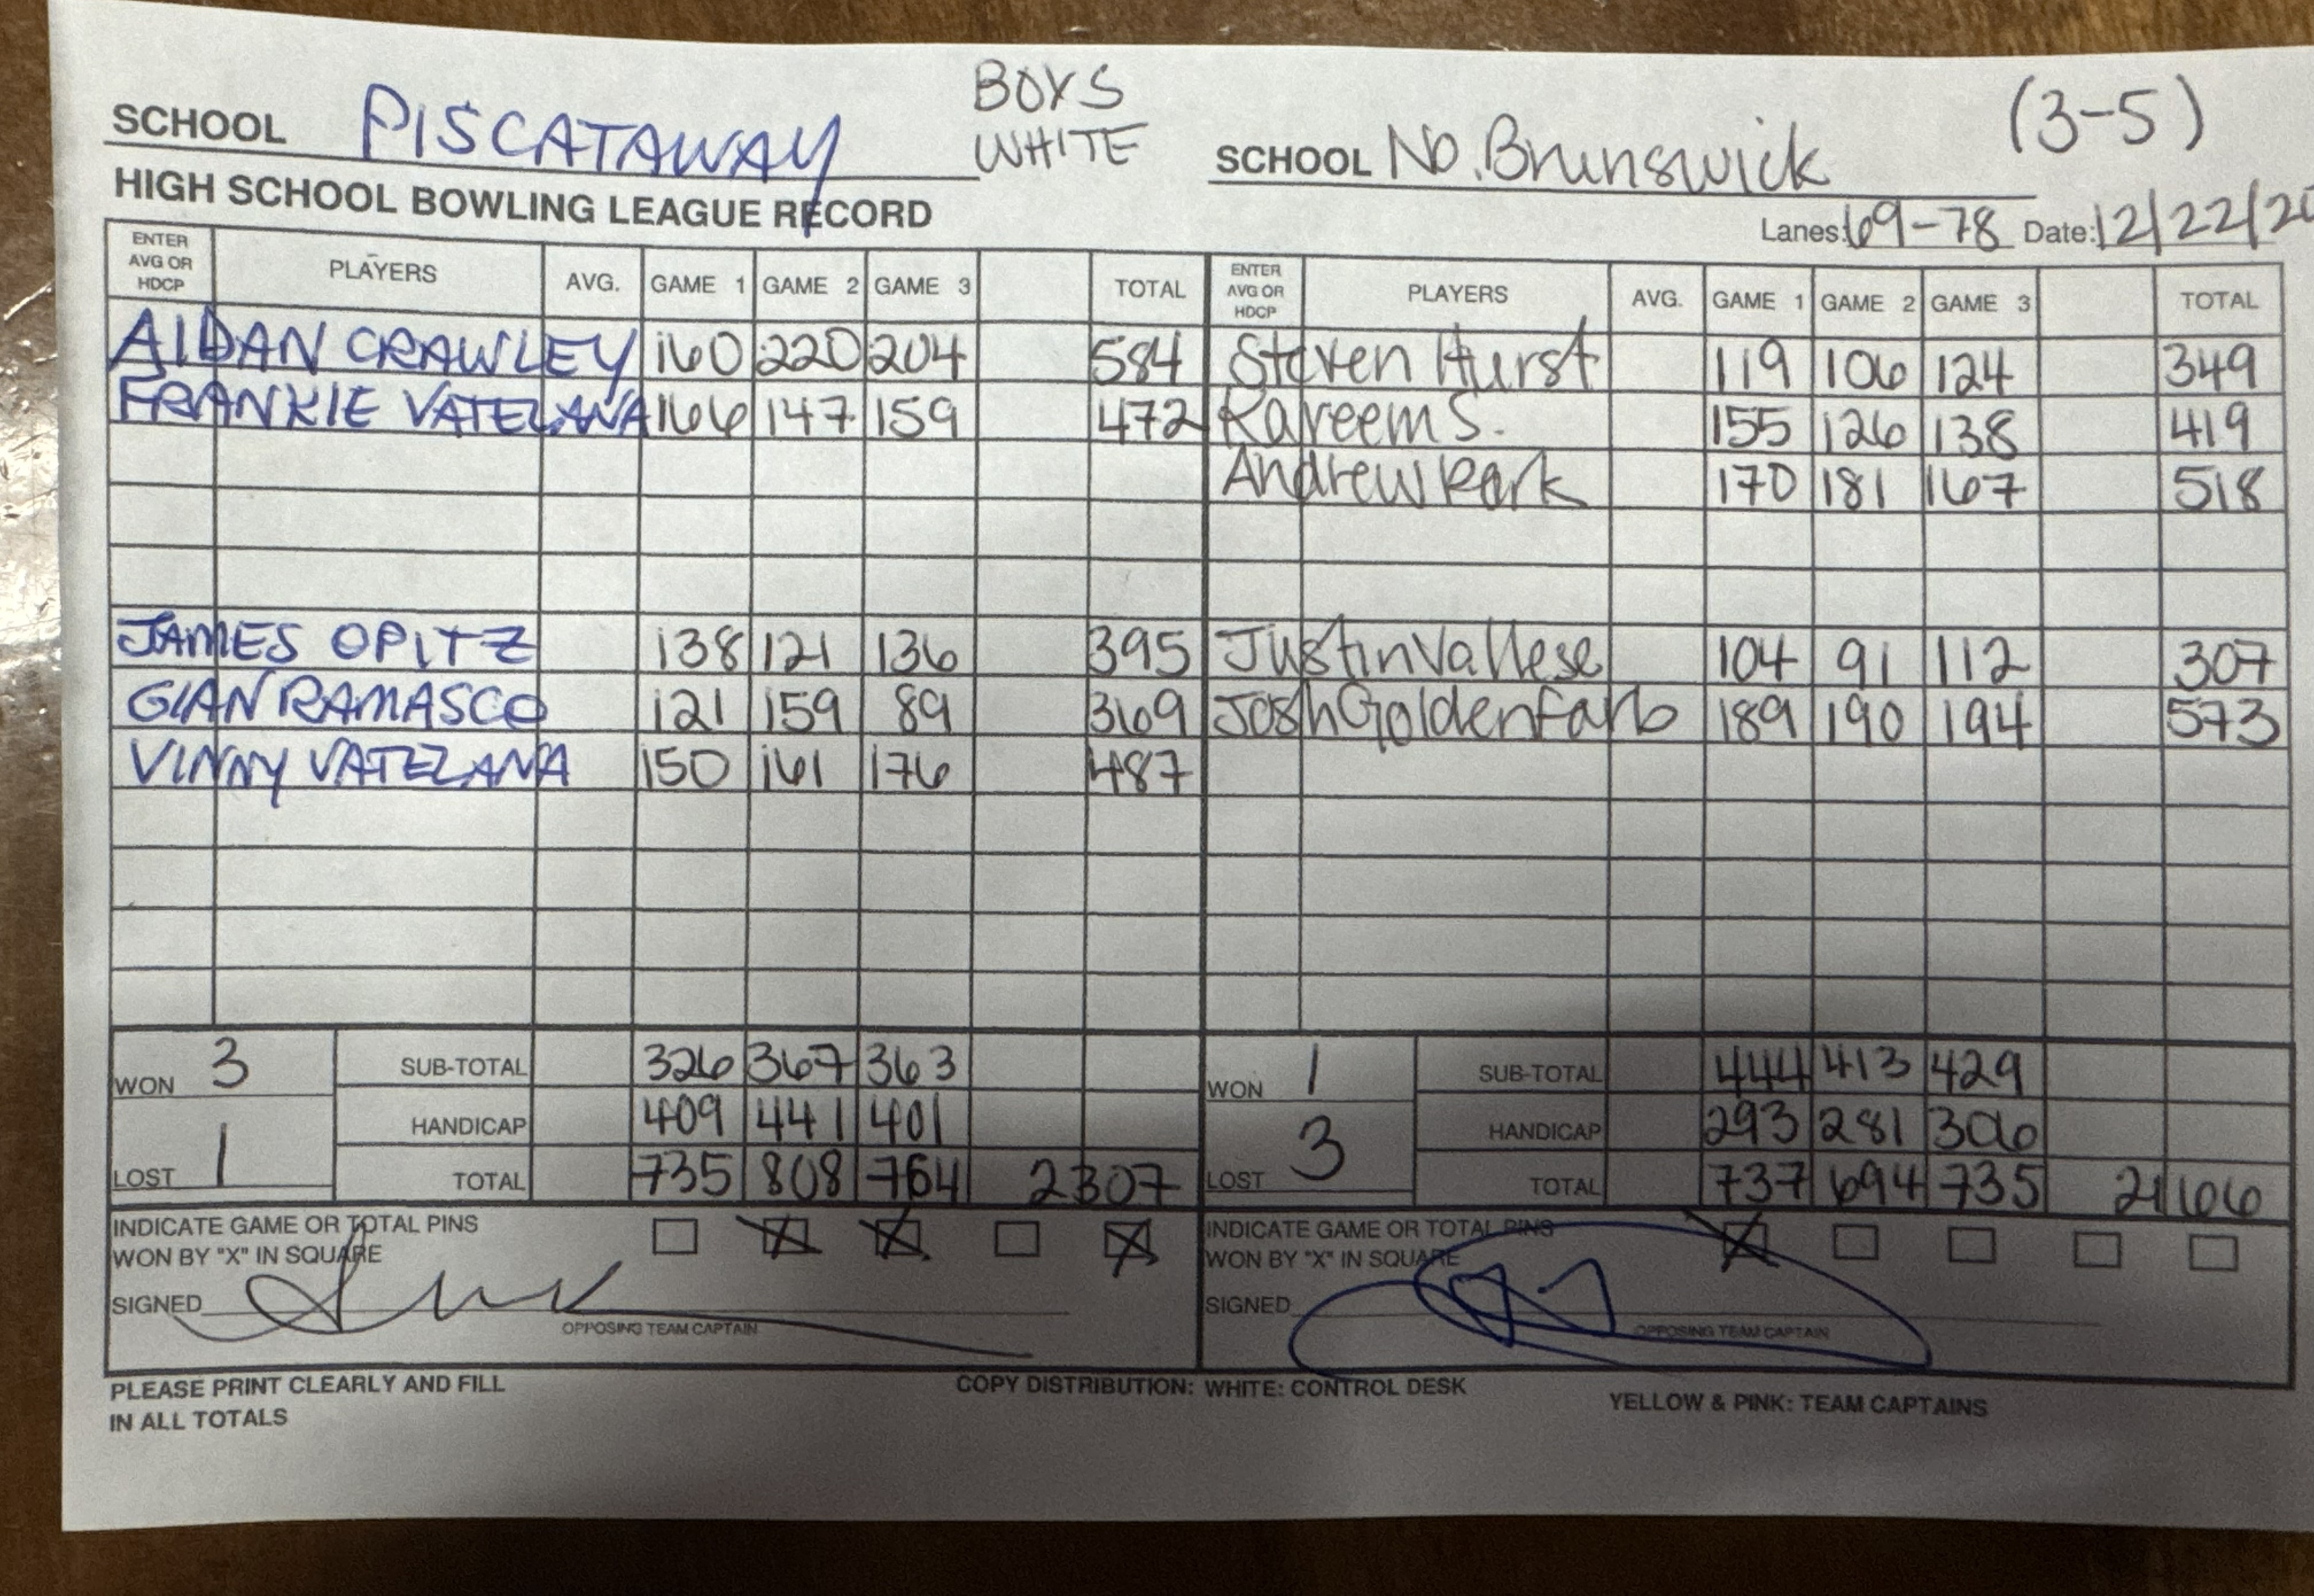 BOYS
WHITE
(3-5)
SCHOOL PISCATAWAY
SCHOOL No. Brunswick
HIGH SCHOOL BOWLING LEAGUE RECORD
Lanes: 69-78 Date: 12/22/20
ENTER AVG OR HDCP PLAYERS AVG. GAME 1 GAME 2 GAME 3 TOTAL ENTER AVG OR HDCP PLAYERS AVG. GAME 1 GAME 2 GAME 3 TOTAL
AIDAN CRAWLEY 160 220 204 584 Steven Hurst 119 106 124 349
FRANKIE VATELANA 166 147 159 472 Kareem S. 155 126 138 419
Andrew Park 170 181 167 518
JAMES OPITZ 138 121 136 395 Justin Vallese 104 91 112 307
GIAN RAMASCO 121 159 89 369 Josh Goldenfarb 189 190 194 573
VINNY VATELANA 150 161 176 487
WON 3 SUB-TOTAL 326 367 363 WON 1 SUB-TOTAL 444 413 429
HANDICAP 409 441 401 HANDICAP 293 281 306
LOST 1 TOTAL 735 808 764 2307 LOST 3 TOTAL 737 694 735 2166
INDICATE GAME OR TOTAL PINS
WON BY "X" IN SQUARE
INDICATE GAME OR TOTAL PINS
WON BY "X" IN SQUARE
SIGNED
OPPOSING TEAM CAPTAIN
SIGNED
OPPOSING TEAM CAPTAIN
PLEASE PRINT CLEARLY AND FILL
IN ALL TOTALS
COPY DISTRIBUTION: WHITE: CONTROL DESK
YELLOW & PINK: TEAM CAPTAINS